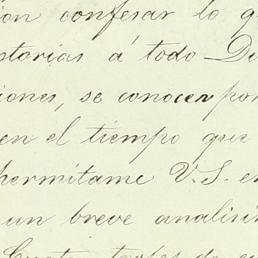 ion confesar lo q
storias á todo Di
iones, se conocer por
en el tiempo que
permítame V.S. en
un breve analisi